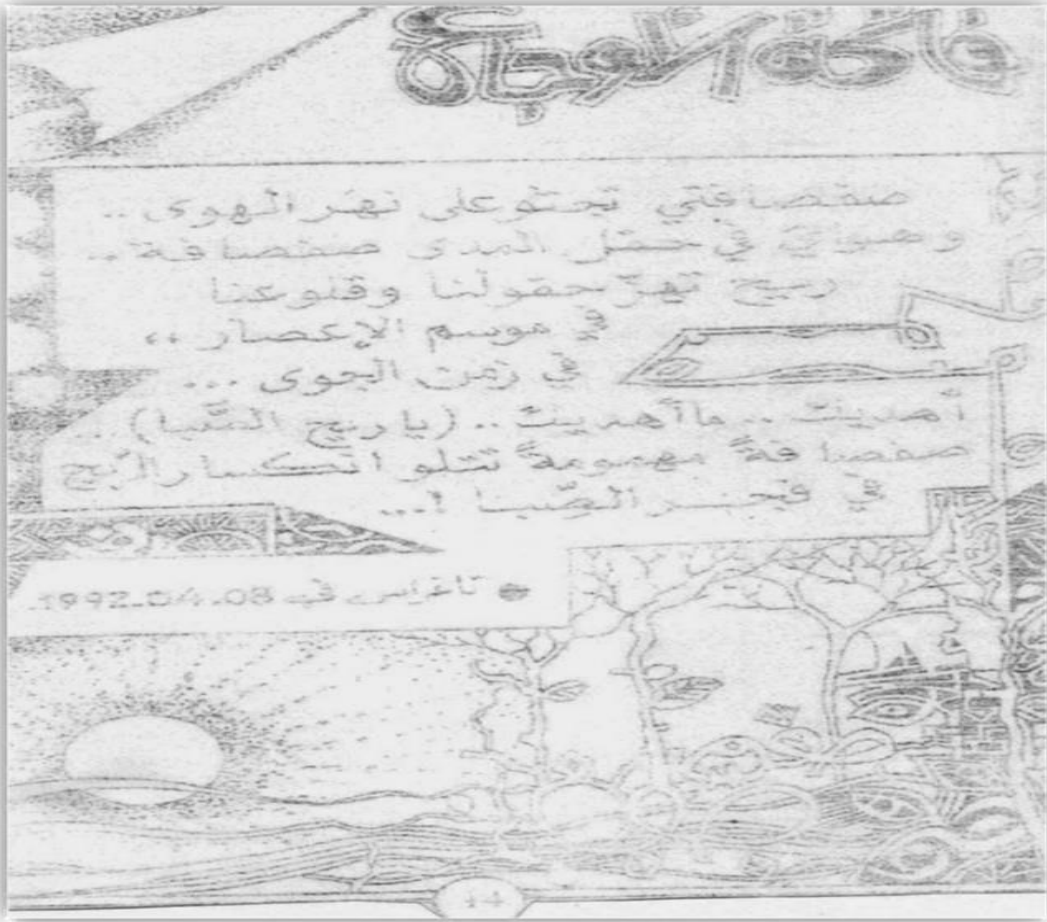 صفصافتي تجثو على نهر الهوى ..
وهواي في حقل المدى صفصافة ..
ريح تهزّ حقولنا وقلوعنا
في موسم الإعصار ،،
في زمن الجوى ...
أهديتك .. ما أهديتك .. (يا ريح الصّبا) ..
صفصافةً مهمومةً تتلو انكسار الرّيح
في فجر الصّبا !...
في 1992.04.08.